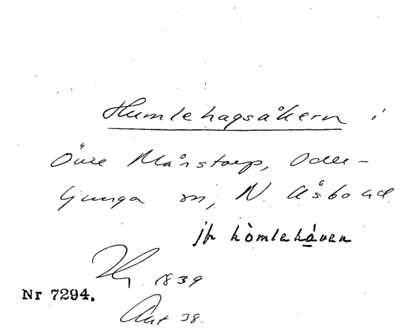 Humlehagsåkern i
Övre Månstorp, Oder-
ljunga sn, N. Åsbo hd.
jfr hòmlehà̱ven
1839
Nr 7294.
Ant 38.